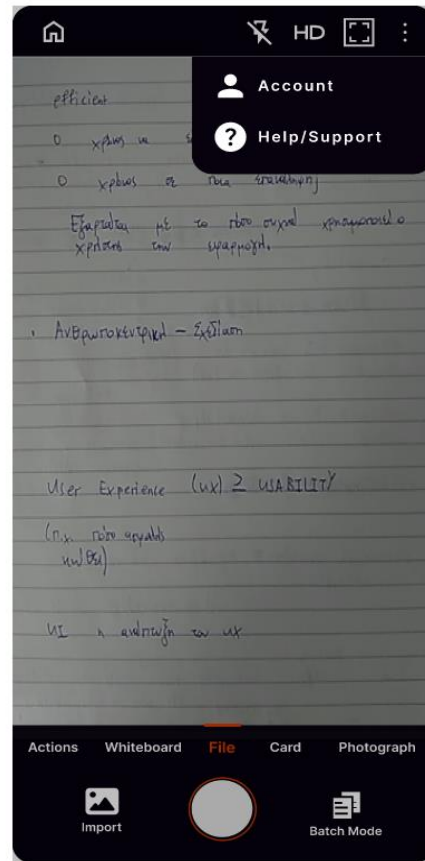 HD
Account
Help/Support
efficient
Ο χρόνος να
Ο χρόνος σε ποια επανάληψη
Εξαρτάται με το πόσο συχνά χρησιμοποιεί ο
χρήστης την εφαρμογή.
· Ανθρωποκεντρική – Σχεδίαση
User Experience (UX) ≥ USABILITY
(π.χ. πόσο ασφαλής
UI η ανάπτυξη του UX
Actions Whiteboard File Card Photograph
Import
Batch Mode